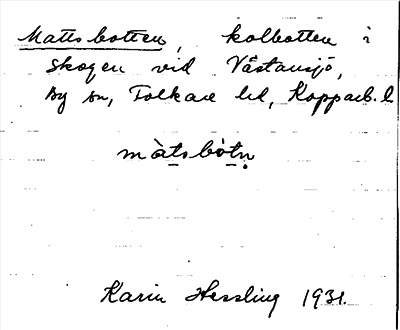 Mattsbotten, kolbotten i
skogen vid Västansjö,
By sn, Folkare hd, Kopparb. l.
màtsbòtn̥
Karin Hessling 1931.